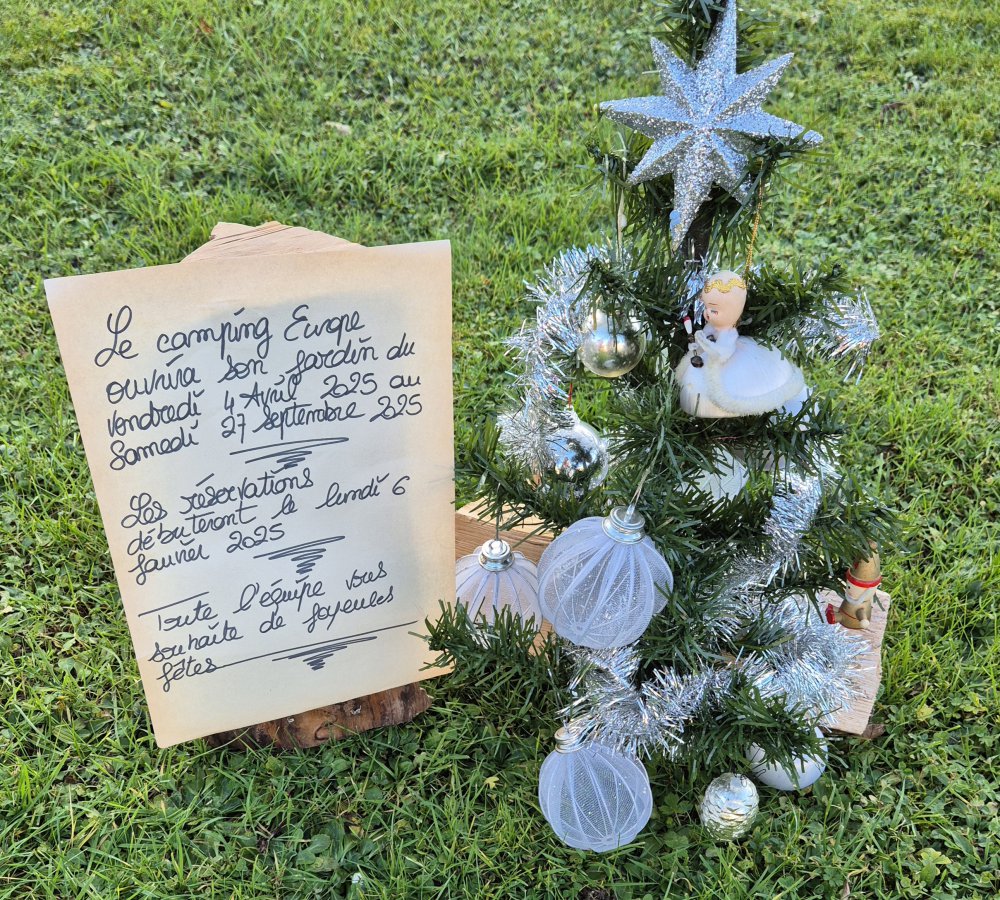 Le camping Europe
ouvrira son jardin du
vendredi 4 Avril 2025 au
Samedi 27 Septembre 2025
Les réservations
débuteront le lundi 6
Janvier 2025
Toute l'équipe vous
souhaite de joyeuses
fêtes